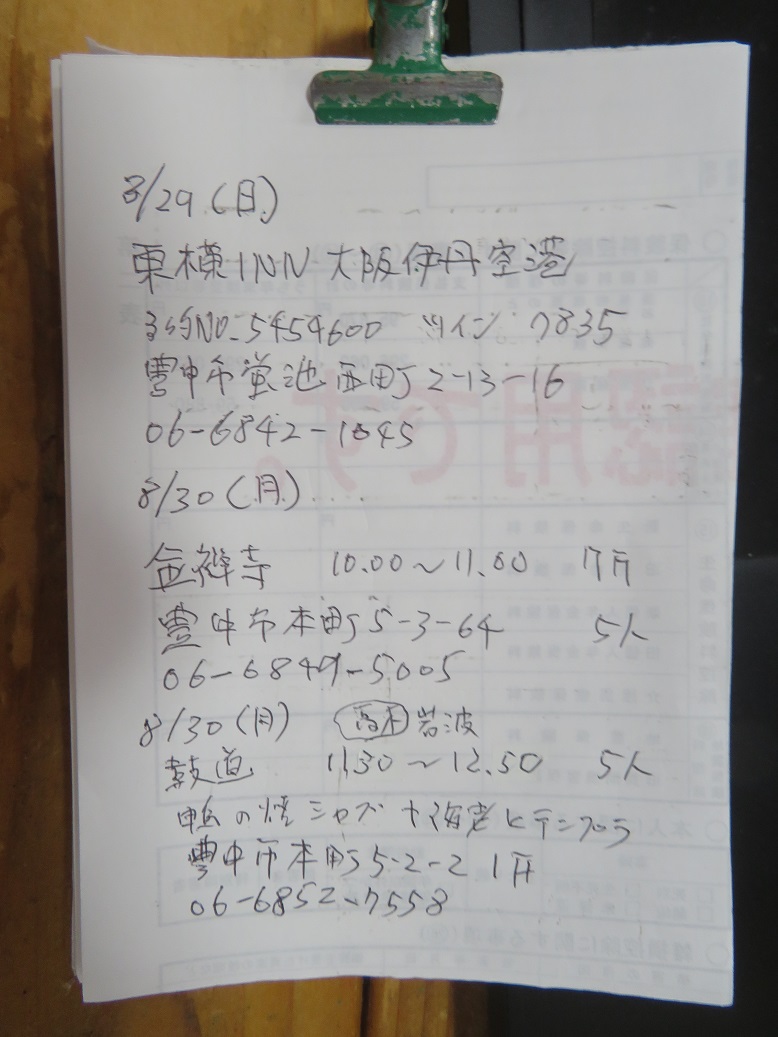 8/29(日)
東横INN 大阪伊丹空港
予約NO.5454600 ツイン 7835
豊中市蛍池西町2-13-16
06-6842-1045
8/30(月)
金禅寺 10.00〜11.00
豊中市本町5-3-64 5人
06-6849-5005
8/30(月) 岩波
鼓道 11.30〜12.50 5人
鴨の焼シャブ 海老 テンプラ
豊中市本町5-2-2 1F
06-6852-7558